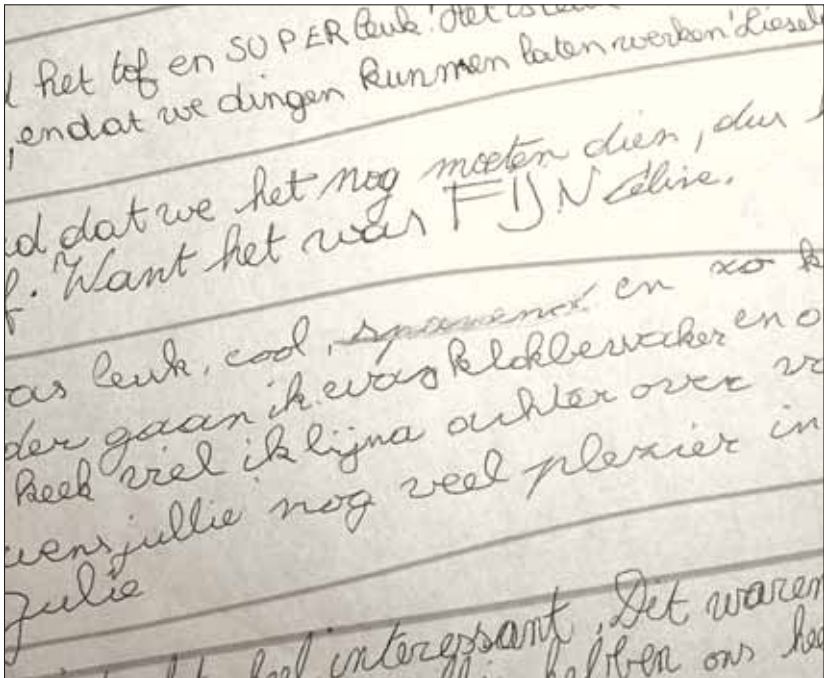 het tof en SUPER leuk! Het is
, en dat we dingen kunnen laten werken! Liesel
dat we het nog moeten dien, dus
. Want het was FIJN Céline.
as leuk, cool, en zo k
der gaan ik was klokbewaker en o
keek viel ik lijna achter over vo
wens jullie nog veel plezier in
Julie
heel interessant. Dit waren
hebben ons hee